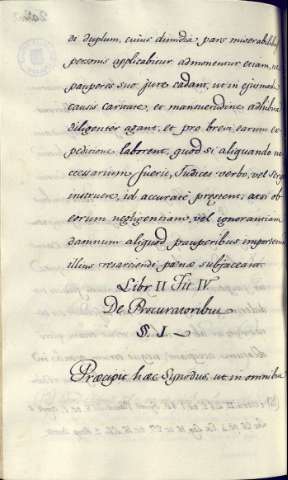 de duplum, cuius dimidia pars miserabilib,
personis applicabitur admonentur etiam, ne
pauperes suo jure cadant, ut in ejusmodi
causis caritate, et mansuetudine adhibita
diligenter agant, et pro brevi earum ex
peditione laborent, quod si aliquando ne
cessarium fuerit, Judices verbo, vel scrip
instruere, id accurate prestent; ac si ob
eorum negligentiam, vel ignorantiam
damnum aliquod pauperibus
illius resarciendi pœnæ subjaceant.
Libr II Tit IV
De Procuratoribus
§. I.
Præcipit hæc Synodus, ut in omnibus